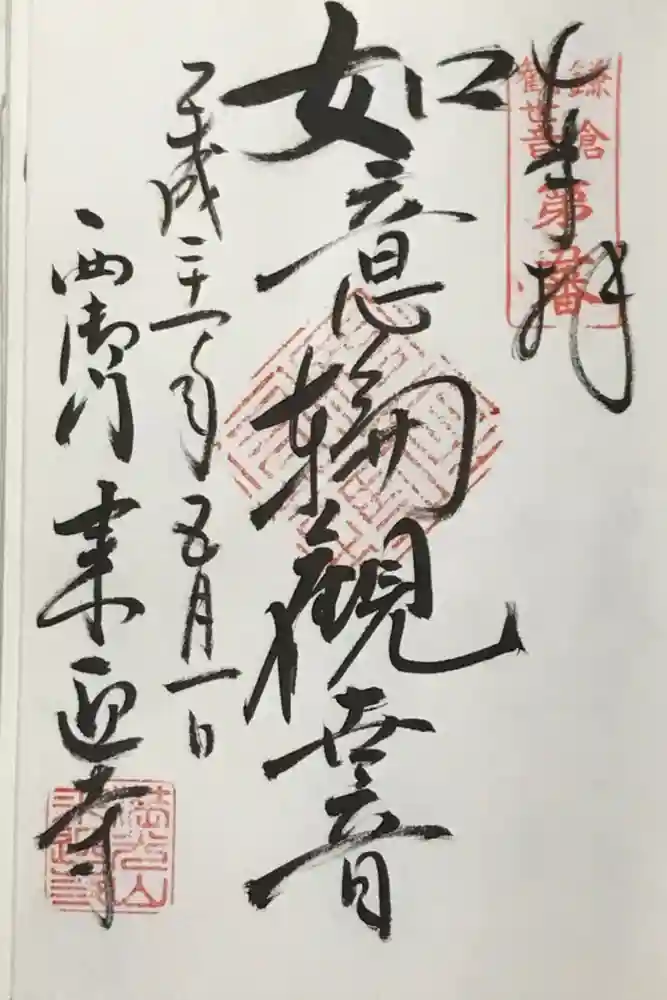 奉拝
鎌倉
観世音
第五番
如意輪観世音
平成二十一年五月一日
西御門 来迎寺